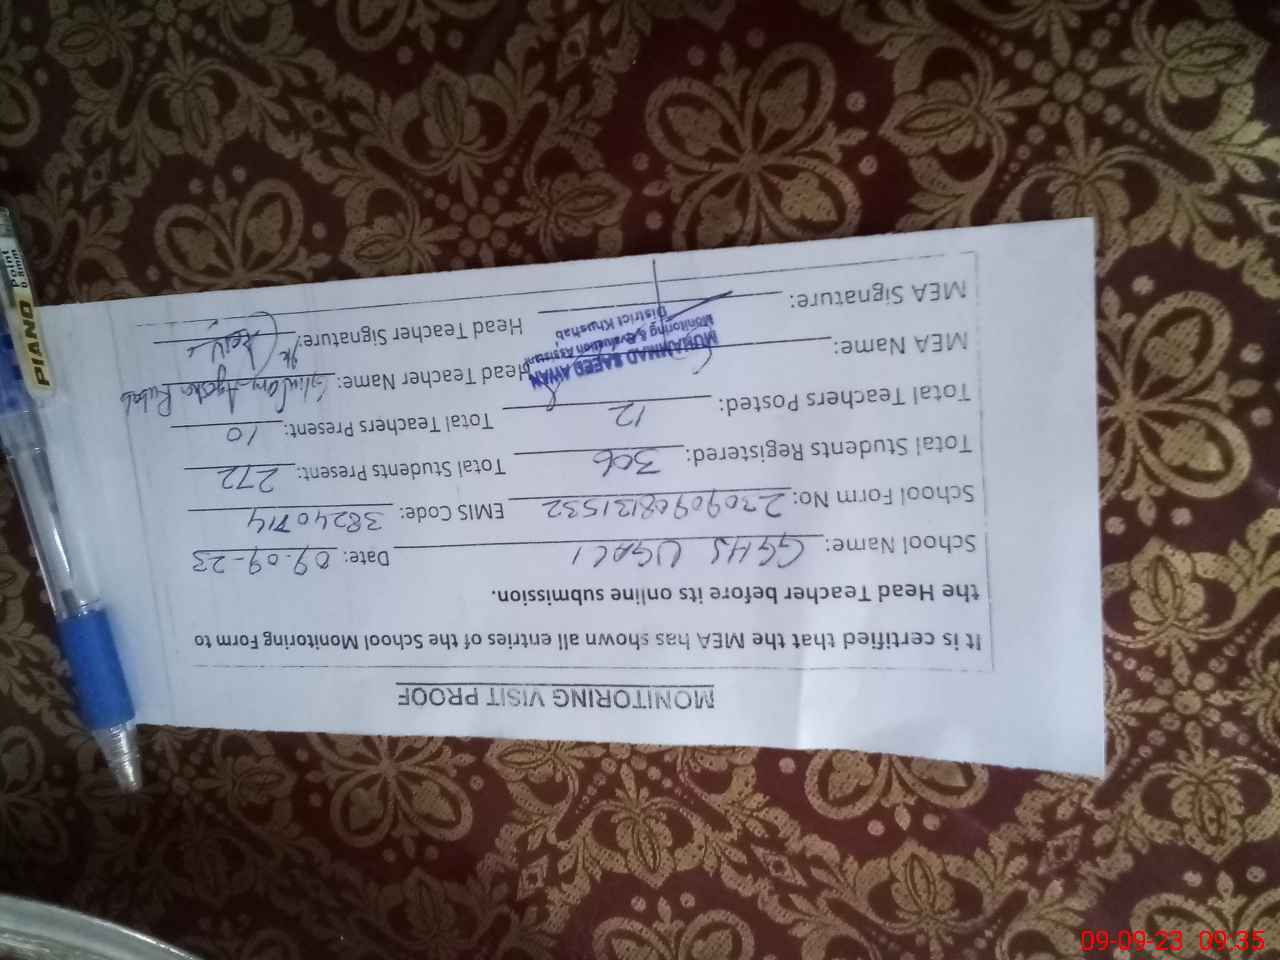 MONITORING VISIT PROOF
It is certified that the MEA has shown all entries of the School Monitoring Form to
the Head Teacher before its online submission.
School Name: GGHS UGALI Date: 09-09-23
School Form No: 23090908131532 EMIS Code: 38240714
Total Students Registered: 306 Total Students Present: 272
Total Teachers Posted: 12 Total Teachers Present: 10
MEA Name: Head Teacher Name: Ghulam Ayesha Rubab
MUHAMMAD SAEED AWAN
Monitoring & Evaluation Assistant
District Khushab
MEA Signature: Head Teacher Signature:
PIANO Point
0.8mm
09-09-23 09:35